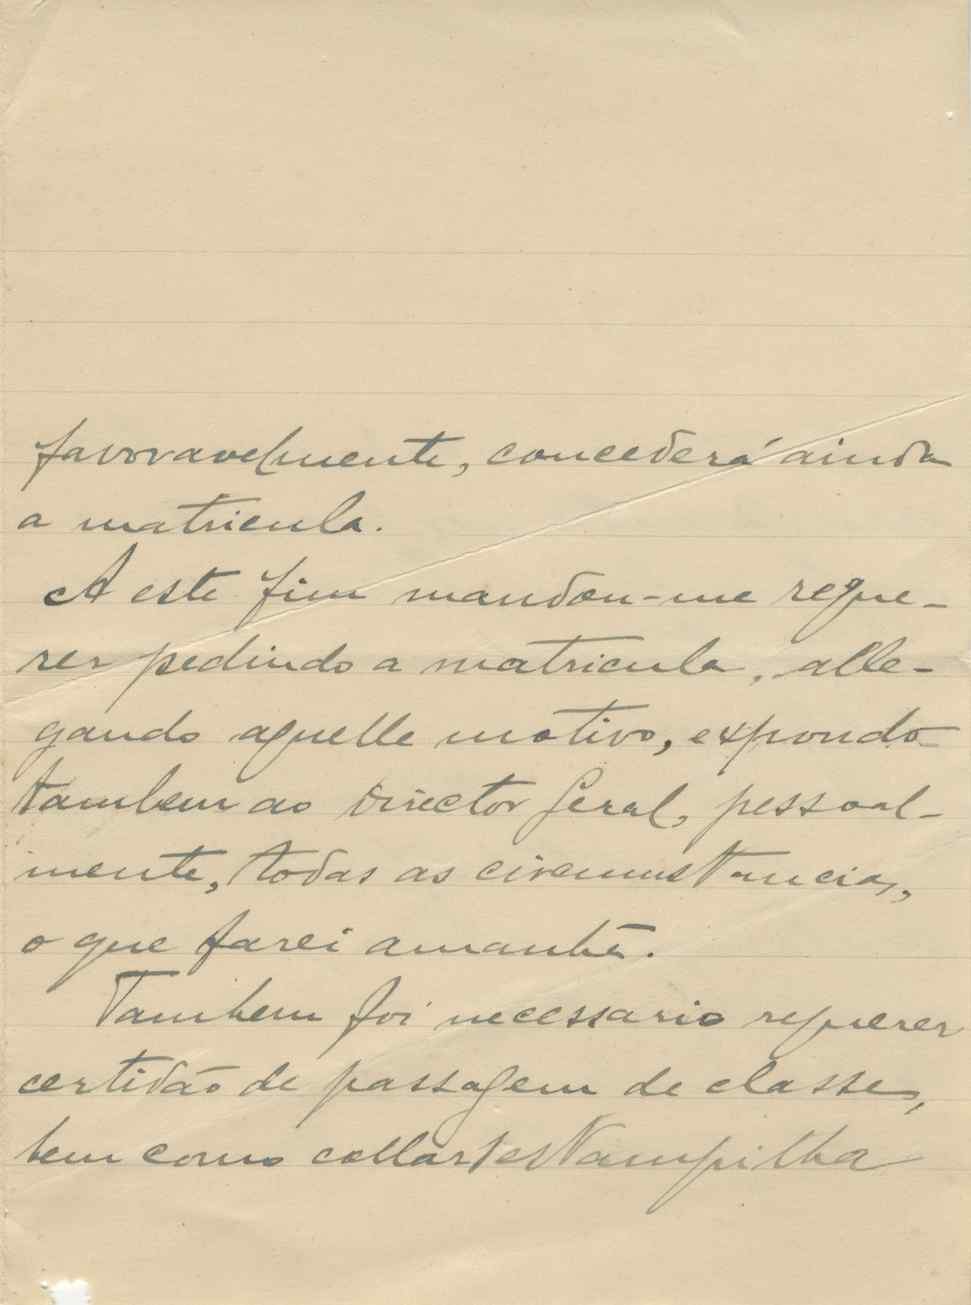 favoravelmente, concederá ainda
a matricula.
A este fim mandou-me reque-
rer pedindo a matricula, alle-
gando aquelle motivo, expondo
tambem ao Director Geral, pessoal-
mente, todas as circumstancias,
o que farei amanhã.
Tambem foi necessario requerer
certidão de passagem de classe,
bem como collar estampilha